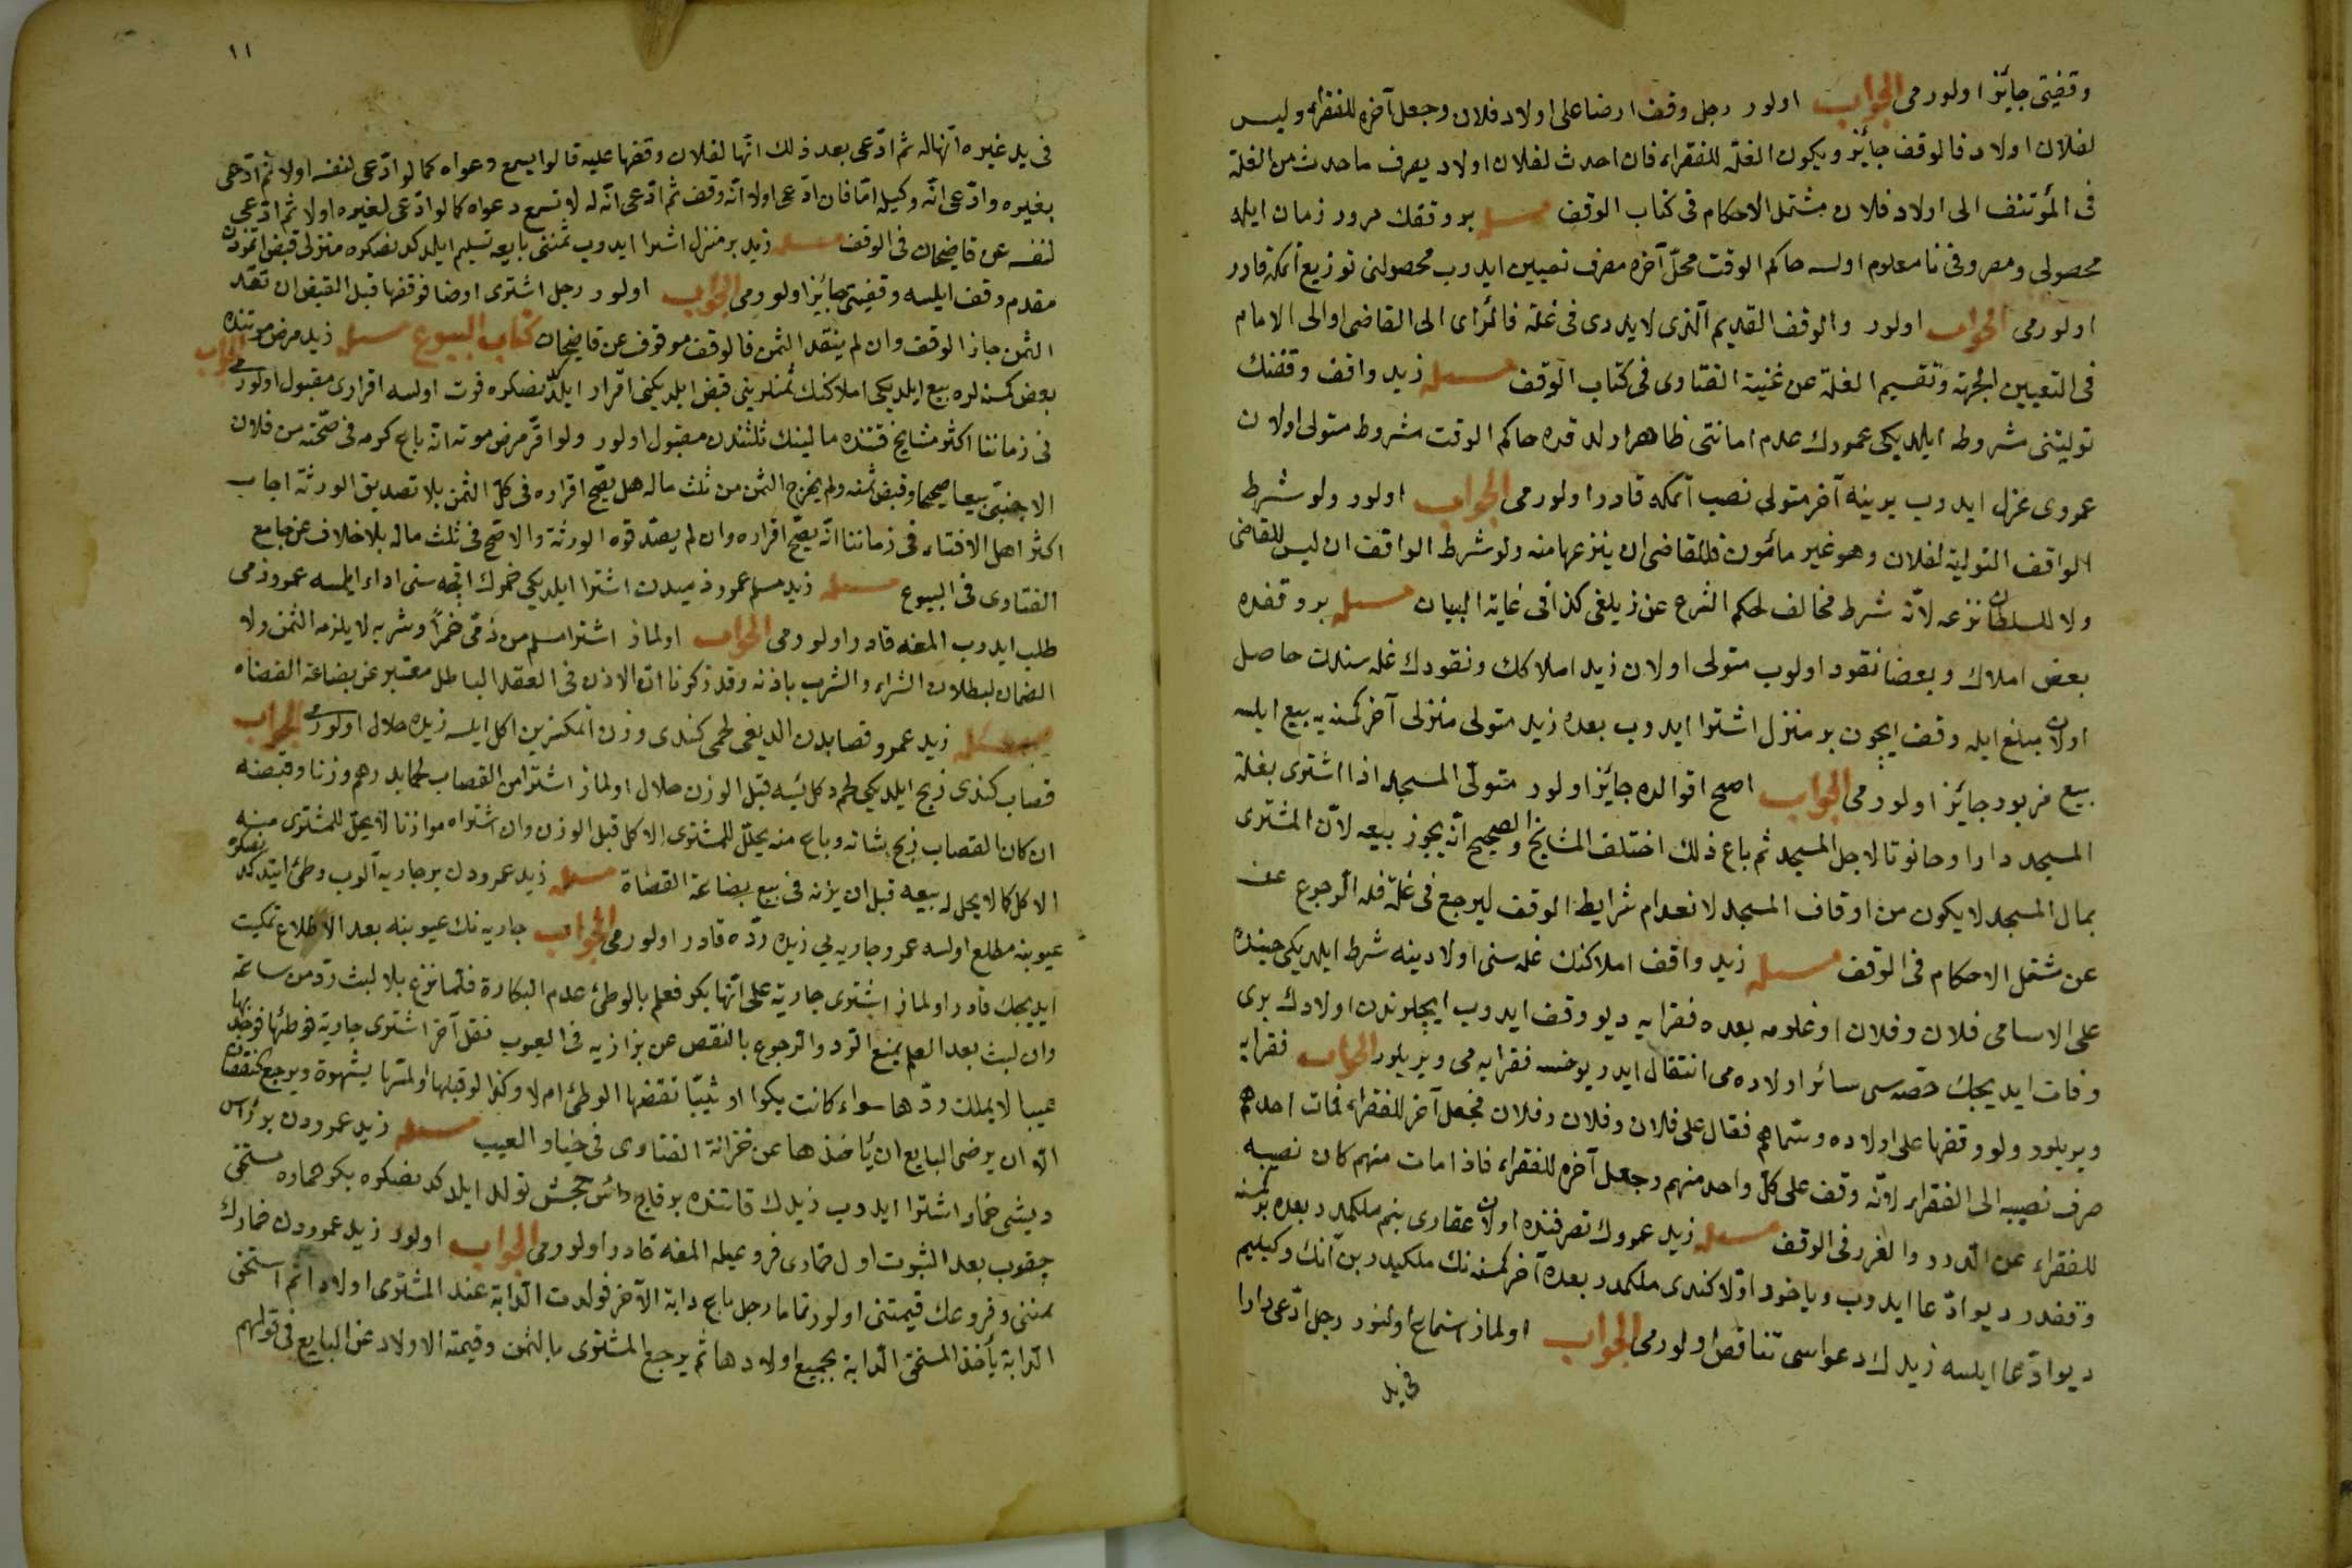 وقفيتى جايز اولورمى الجواب اولور رجل وقف ارضا على اولاد فلان وجعل آخره للفقراء وليس
لفلان اولاد فالوقف جائز ويكون الغلّة للفقراء فان احدث لفلان اولاد يصرف ما حدث من الغلّة
فى المؤتنف الى اولاد فلان مشتمل الاحكام فى كتاب الوقف مسئله بر وقفك مرور زمان ايله
محصولى ومصروفى نامعلوم اولسه حاكم الوقت محلّ آخره مصرف تعيين ايدوب محصولنى توزيع اتمكه قادر
اولورمى الجواب اولور والوقف القديم الّذى لا يدرى فى غلّة فالرّاى الى القاضى او الى الامام
فى التعيين الجهة وتقسيم الغلّة عن غنية الفتاوى فى كتاب الوقف مسئله زيد واقف وقفنك
توليتنى مشروطه ايلديكى عمروك عدم امانتى ظاهر اولدقده حاكم الوقت مشروط متولى اولان
عمروى عزل ايدوب يرينه آخر متولى نصب اتمكه قادر اولورمى الجواب اولور ولو شرط
الواقف التولية لفلان وهو غير مأمون فللقاضى ان ينزعها منه ولو شرط الواقف ان ليس للقاضى
ولا للسلطان نزعه لانّه شرط مخالف لحكم الشرع عن زيلعى كذا فى غاية البيان مسئله بر وقفده
بعض املاك وبعضا نقود اولوب متولى اولان زيد املاكك ونقودك غله سندن حاصل
اولان مبلغ ايله وقف ايچون بر منزل اشترا ايدوب بعده زيد متولى منزلى آخر كمسنه يه بيع ايلسه
بيع مزبور جائز اولورمى الجواب اصح اقوالده جائز اولور متولّى المسجد اذا اشترى بغلّة
المسجد دارا وحانوتا لاجل المسجد ثم باع ذلك اختلف المشايخ والصحيح انّه يجوز بيعه لانّ المشترى
بمال المسجد لا يكون من اوقاف المسجد لانعدام شرايط الوقف ليرجع فى غلّة فله الرجوع عنه
عن مشتمل الاحكام فى الوقف مسئله زيد واقف املاكنك غله سنى اولادينه شرط ايلديكى حينده
على الاسامى فلان وفلان اوغلومه بعده فقرايه ديو وقف ايدوب ايچلوندن اولادك برى
وفات ايديجك حصّه سى سائر اولاده مى انتقال ايدر يوخسه فقرايه مى ويريلور الجواب فقرايه
ويريلور ولو وقفها على اولاده وسمّاهم فقال على فلان وفلان وفلان فجعل آخر للفقراء فمات احدهم
صرف نصيبه الى الفقراء لانّه وقف على كلّ واحد منهم وجعل آخره للفقراء فاذا مات منهم كان نصيبه
للفقراء عن الدرر والغرر فى الوقف مسئله زيد عمروك تصرفنده اولان عقارى بنم ملكمدر بعده بر كمسنه
وقفدر ديو ادّعا ايدوب وياخود اوّلا كندى ملكمدر بعده آخر كمسنه نك ملكيدر بن آنك وكيليم
ديو ادّعا ايلسه زيدك دعواسى تناقض اولورمى الجواب اولماز استماع اولنور رجل ادّعى دارا
فى يد
١١
فى يد غيره انّها له ثم ادّعى بعد ذلك انّها لفلان وقفها عليه قالوا يسمع دعواه كما لو ادّعى لنفسه اولا ثم ادّعى
بغيره وادّعى انّه وكيله امّا فان ادّعى اولا انّه وقف ثم ادّعى انّه له لا تسمع دعواه كما لو ادّعى لغيره اولا ثم ادّعى
لنفسه عن قاضيخان فى الوقف مسئله زيد بر منزل اشترا ايدوب ثمننى بايعه تسليم ايلدكدنصكره منزلى قبض اتمزدن
مقدم وقف ايلسه وقفيتى جائز اولورمى الجواب اولور رجل اشترى ارضا فوقفها قبل القبض ان نقد
الثمن جاز الوقف وان لم ينقد الثمن فالوقف موقوف عن قاضيخان كتاب البيوع مسئله زيد مرض موتنده
بعض كمسنه لره بيع ايلديكى املاكنك ثمنلرينى قبض ايلديكنى اقرار ايلدكدنصكره فوت اولسه اقرارى مقبول اولورمى الجواب
فى زماننا اكثر مشايخ قتنده مالينك ثلثندن مقبول اولور ولو اقرّ مرض موته انّه باع كرمه فى صحّته من فلان
الاجنبىّ بيعا صحيحا وقبض ثمنه ولم يخرج الثمن من ثلث ماله هل يصحّ اقراره فى كلّ الثمن بلا تصديق الورثة اجاب
اكثر اهل الافتاء فى زماننا انّه يصحّ اقراره وان لم يصدّقوه الورثة والاصحّ فى ثلث ماله بلا خلاف عن جامع
الفتاوى فى البيوع مسئله زيد مسلم عمرو ذميدن اشترا ايلديكى خمرك اقچه سنى اداء ايلمسه عمرو ذمى
طلب ايدوب المغه قادر اولورمى الجواب اولماز اشترا مسلم من ذمّى خمرًا وشربه لا يلزمه الثمن ولا
الضمان لبطلان الشراء والشرب باذنه وقد ذكرنا انّ الاذن فى العقد الباطل معتبر عن بضاعة القضاه
مسئله زيد عمرو قصابدن الديغى لحمى كندى وزن اتمكسزين اكل ايلسه زيده حلال اولورمى الجواب
قصاب كندى ذبح ايلديكى لحم دكل ايسه قبل الوزن حلال اولماز اشترا من القصاب لحما بدرهم وزنا وقبضه
ان كان القصاب ذبح بشاته وباع منه يحلّ للمشترى الاكل قبل الوزن وان اشتراه موازنا لا يحلّ للمشترى منه
الاكل كما لا يحل له بيعه قبل ان يزنه فى بيع بضاعة القضاة مسئله زيد عمرودن بر جاريه آلوب وطئ ايتدكدنصكره
عيوبنه مطلع اولسه عمرو جاريه يى زيده ردّه قادر اولورمى الجواب جاريه نك عيوبنه بعد الاطلاع تمكيت
ايديجك قادر اولماز اشترى جارية على انّها بكر فعلم بالوطئ عدم البكارة فلمّا نزع بلا لبث ردّ من ساعته
وان لبث بعد العلم يمنع الرّد والرجوع بالنقص عن بزازيه فى العيوب نقل آخر اشترى جارية فوطئها فوجد بها
عيبا لا يملك ردّها سواء كانت بكرا او ثيّبا نقضها الوطئ ام لا وكذا لو قبلها او لمسها بشهوة ويرجع بالنقصان
الّا ان يرضى البايع ان يأخذها عن خزانة الفتاوى فى خيار العيب مسئله زيد عمرودن بر رأس
ديشى خمار اشترا ايدوب زيدك قاتنده بر قاچ رأس جحش تولد ايلدكدنصكره بكر حماره مستحق
چيقوب بعد الثبوت اول خمارى فروعيله المغه قادر اولورمى الجواب اولور زيد عمرودن خمارك
ثمننى وفروعك قيمتنى اولور تماما رجل باع دابة الآخر فولدت الدابة عند المشترى اولادا ثم استحق
الدابة يأخذ المستحق الدابة بجميع اولادها ثم يرجع المشترى بالثمن وقيمة الاولاد عن البايع فى قولهم